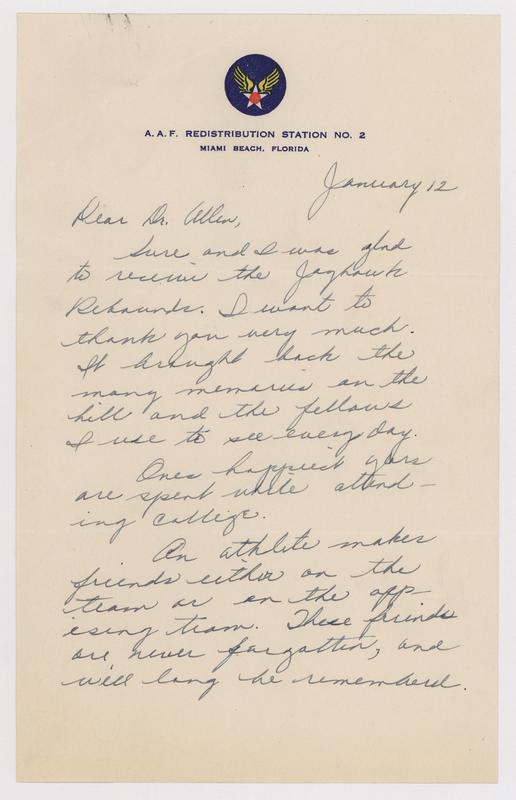 A.A.F. REDISTRIBUTION STATION NO. 2
MIAMI BEACH, FLORIDA
January 12
Dear Dr. Allen,
Sure and I was glad
to receive the Jayhawk
Rebounds. I want to
thank you very much.
It brought back the
many memories on the
hill and the fellows
I use to see every day.
Ones happiest years
are spent while attend-
ing college.
An athlete makes
friends either on the
team or on the opp-
osing team. These friends
are never forgotten, and
will long be rememberd.